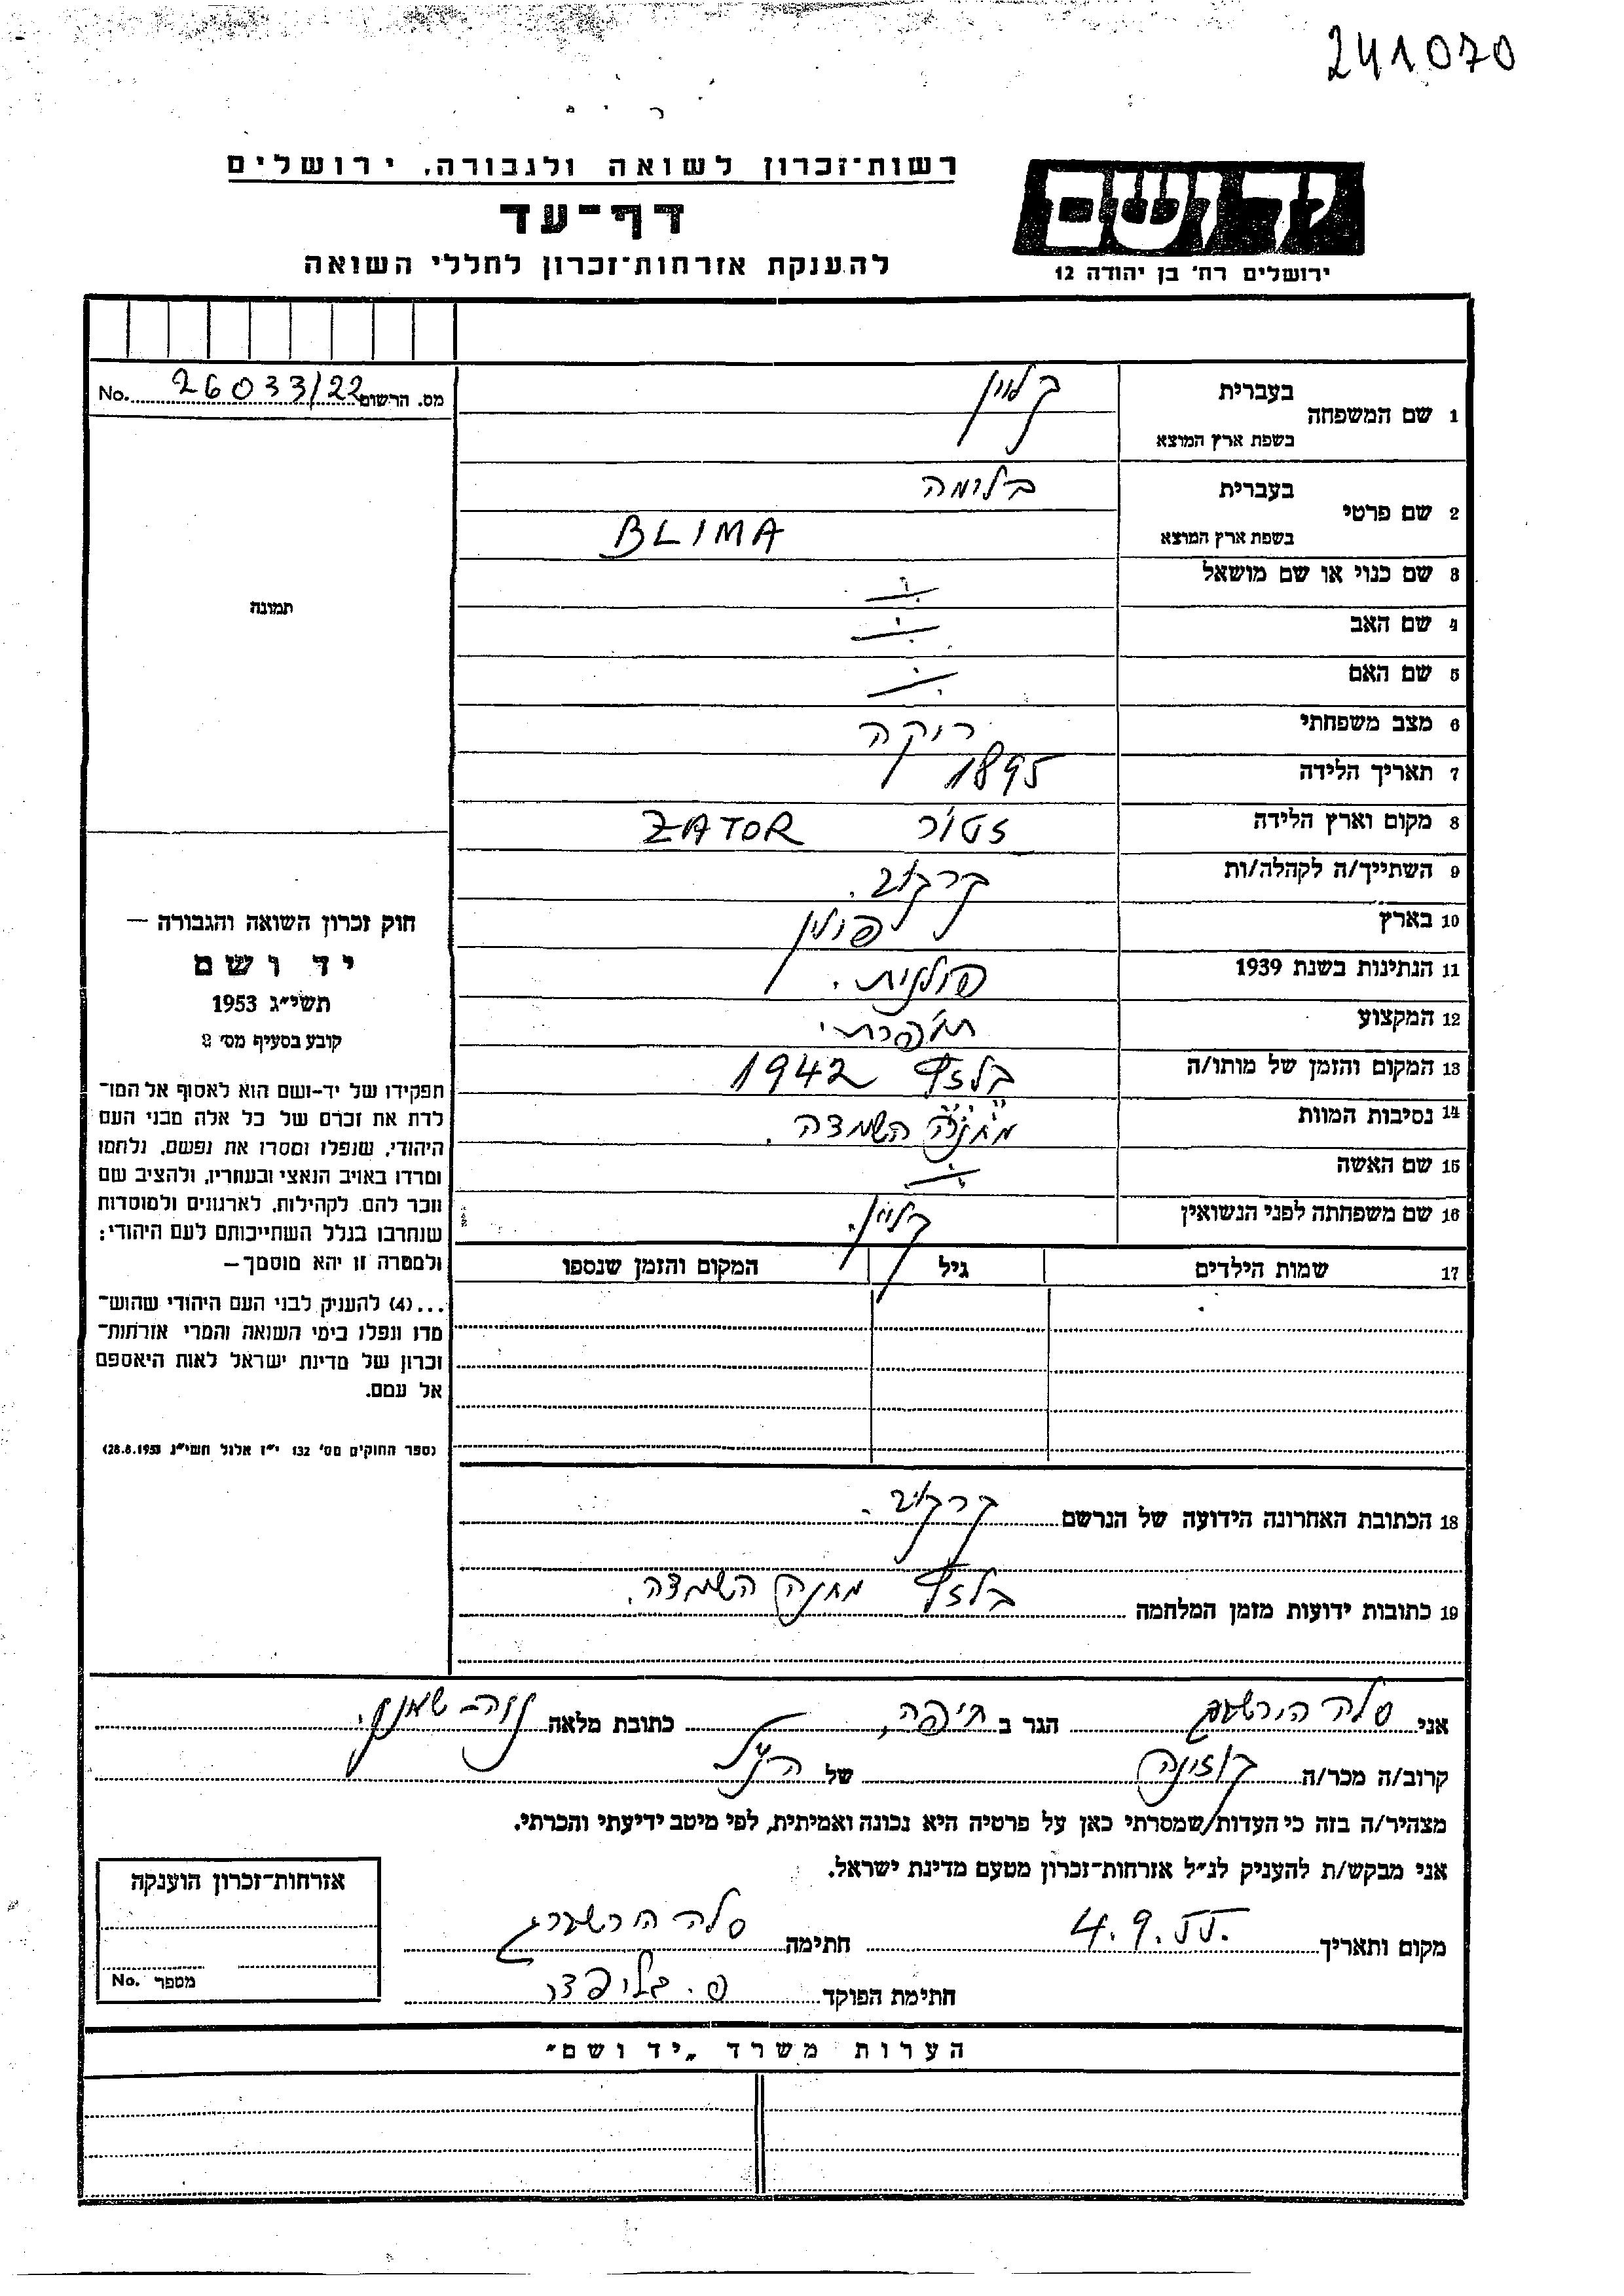 241070
רשות־זכרון לשואה ולגבורה, ירושלים
ידושם
דף־עד
להענקת אזרחות־זכרון לחללי השואה
ירושלים רח' בן יהודה 12
מס. הרשום 26033/22 No.
1 שם המשפחה בעברית קליין
בשפת ארץ המוצא
2 שם פרטי בעברית בלימה
בשפת ארץ המוצא BLIMA
3 שם כנוי או שם מושאל
4 שם האב
5 שם האם
6 מצב משפחתי רוקה
7 תאריך הלידה 1895
8 מקום וארץ הלידה זטור ZATOR
9 השתייך/ה לקהלה/ות קרקוב.
10 בארץ פולין
11 הנתינות בשנת 1939 פולנית.
12 המקצוע תופרת
13 המקום והזמן של מותו/ה בלזץ 1942
14 נסיבות המוות מחנה השמדה.
15 שם האשה
16 שם משפחתה לפני הנשואין קליין.
17 שמות הילדים גיל המקום והזמן שנספו
תמונה
חוק זכרון השואה והגבורה —
יד ושם
תשי״ג 1953
קובע בסעיף מס' 2
תפקידו של יד-ושם הוא לאסוף אל המו־
לדת את זכרם של כל אלה מבני העם
היהודי, שנפלו ומסרו את נפשם, נלחמו
ומרדו באויב הנאצי ובעוזריו, ולהציב שם
וזכר להם, לקהילות, לארגונים ולמוסדות
שנחרבו בגלל השתייכותם לעם היהודי;
ולמטרה זו יהא מוסמך —
...(4) להעניק לבני העם היהודי שהוש־
מדו ונפלו בימי השואה והמרי אזרחות־
זכרון של מדינת ישראל לאות היאספם
אל עמם.
(ספר החוקים מס' 132 י״ז אלול תשי״ג 28.8.1953)
18 הכתובת האחרונה הידועה של הנרשם קרקוב.
19 כתובות ידועות מזמן המלחמה בלזץ מחנה השמדה.
אני סלה הירשברג הגר ב חיפה, כתובת מלאה נוה שאנן.
קרוב/ה מכר/ה קוזינה של הנ״ל
מצהיר/ה בזה כי העדות שמסרתי כאן על פרטיה היא נכונה ואמיתית, לפי מיטב ידיעתי והכרתי.
אני מבקש/ת להעניק לנ״ל אזרחות־זכרון מטעם מדינת ישראל.
מקום ותאריך 4.9.55. חתימה סלה הירשברג
חתימת הפוקד
אזרחות־זכרון הוענקה
מספר No.
הערות משרד „יד ושם"